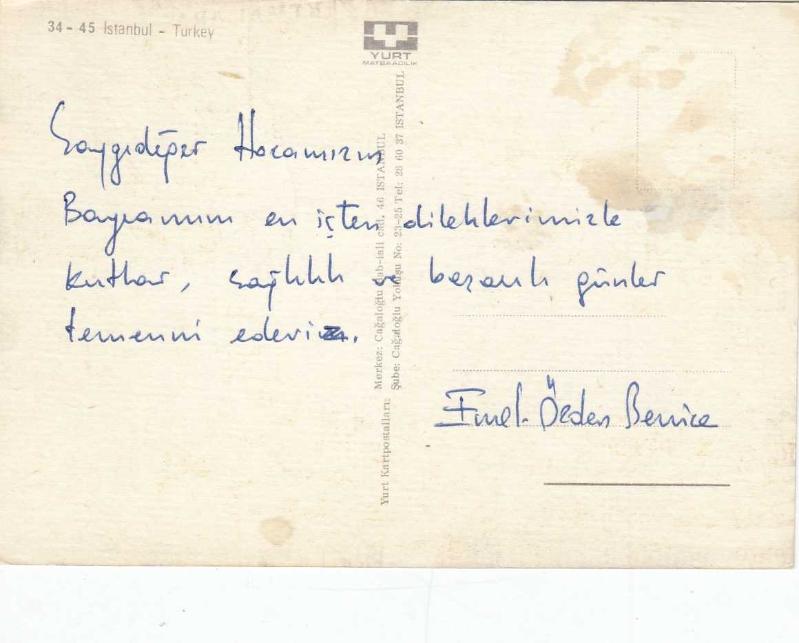 34 - 45 İstanbul - Turkey
YURT
MATBAACILIK
Saygıdeğer Hocamızın
Bayramını en içten dileklerimizle
kutlar, sağlıklı ve başarılı günler
temenni ederiz.
Emel-Özden Bernice
Yurt Kartpostalları: Merkez: Cağaloğlu Bab-ıali cad. 46 ISTANBUL
Şube: Cağaloğlu Yokuşu No: 23-25 Tel: 28 60 37 ISTANBUL